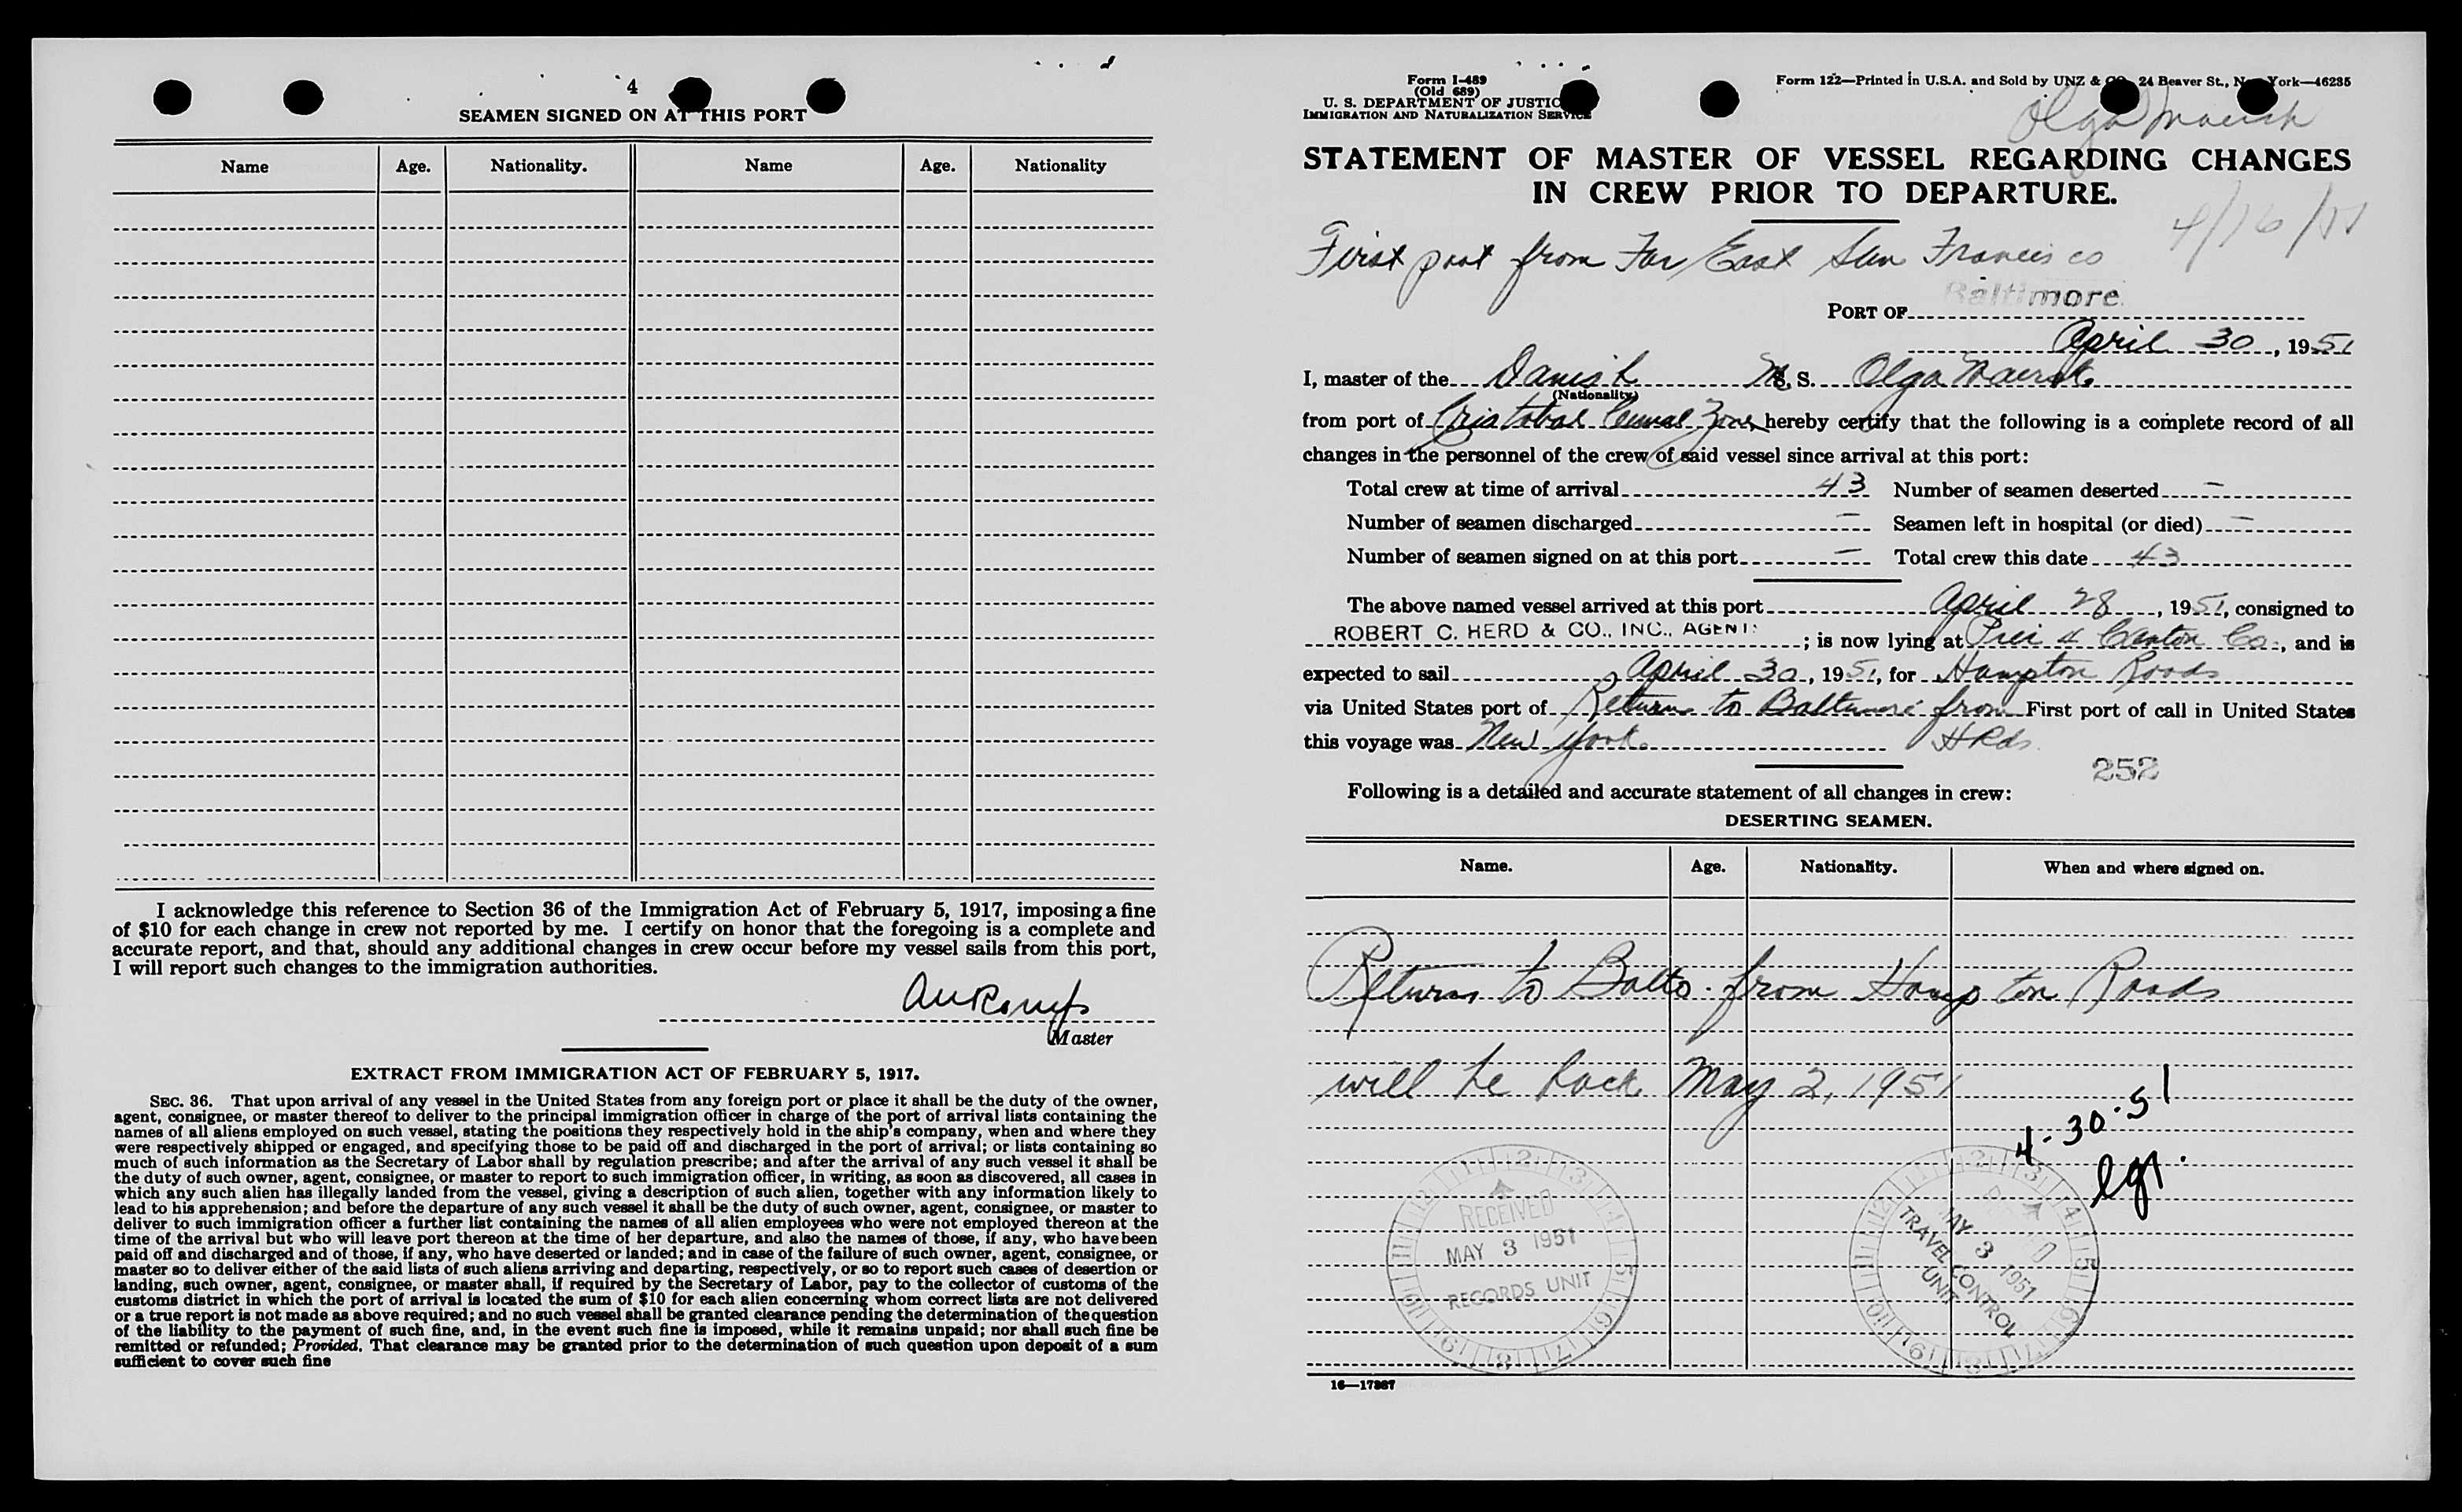 4
SEAMEN SIGNED ON AT THIS PORT
Name Age. Nationality. Name Age. Nationality
I acknowledge this reference to Section 36 of the Immigration Act of February 5, 1917, imposing a fine
of $10 for each change in crew not reported by me. I certify on honor that the foregoing is a complete and
accurate report, and that, should any additional changes in crew occur before my vessel sails from this port,
I will report such changes to the immigration authorities.
Master
EXTRACT FROM IMMIGRATION ACT OF FEBRUARY 5, 1917.
SEC. 36. That upon arrival of any vessel in the United States from any foreign port or place it shall be the duty of the owner,
agent, consignee, or master thereof to deliver to the principal immigration officer in charge of the port of arrival lists containing the
names of all aliens employed on such vessel, stating the positions they respectively hold in the ship's company, when and where they
were respectively shipped or engaged, and specifying those to be paid off and discharged in the port of arrival; or lists containing so
much of such information as the Secretary of Labor shall by regulation prescribe; and after the arrival of any such vessel it shall be
the duty of such owner, agent, consignee, or master to report to such immigration officer, in writing, as soon as discovered, all cases in
which any such alien has illegally landed from the vessel, giving a description of such alien, together with any information likely to
lead to his apprehension; and before the departure of any such vessel it shall be the duty of such owner, agent, consignee, or master to
deliver to such immigration officer a further list containing the names of all alien employees who were not employed thereon at the
time of the arrival but who will leave port thereon at the time of her departure, and also the names of those, if any, who have been
paid off and discharged and of those, if any, who have deserted or landed; and in case of the failure of such owner, agent, consignee, or
master so to deliver either of the said lists of such aliens arriving and departing, respectively, or so to report such cases of desertion or
landing, such owner, agent, consignee, or master shall, if required by the Secretary of Labor, pay to the collector of customs of the
customs district in which the port of arrival is located the sum of $10 for each alien concerning whom correct lists are not delivered
or a true report is not made as above required; and no such vessel shall be granted clearance pending the determination of the question
of the liability to the payment of such fine, and, in the event such fine is imposed, while it remains unpaid; nor shall such fine be
remitted or refunded; Provided, That clearance may be granted prior to the determination of such question upon deposit of a sum
sufficient to cover such fine
Form I-489
(Old 689)
U. S. DEPARTMENT OF JUSTICE
IMMIGRATION AND NATURALIZATION SERVICE
Form 122—Printed in U.S.A. and Sold by UNZ & CO. 24 Beaver St., New York—46235
Olga Maersk
STATEMENT OF MASTER OF VESSEL REGARDING CHANGES
IN CREW PRIOR TO DEPARTURE.
4/16/51
First port from Far East San Francisco
PORT OF Baltimore
April 30, 1951
I, master of the Danish M. S. Olga Maersk
(Nationality)
from port of Cristobal Canal Zone, hereby certify that the following is a complete record of all
changes in the personnel of the crew of said vessel since arrival at this port:
Total crew at time of arrival 43 Number of seamen deserted —
Number of seamen discharged — Seamen left in hospital (or died) —
Number of seamen signed on at this port — Total crew this date 43
The above named vessel arrived at this port April 28, 1951, consigned to
ROBERT C. HERD & CO., INC., AGENT; is now lying at Pier 4 Canton Co., and is
expected to sail April 30, 1951, for Hampton Roads
via United States port of Return to Baltimore from First port of call in United States
this voyage was New York. H Rds.
252
Following is a detailed and accurate statement of all changes in crew:
DESERTING SEAMEN.
Name. Age. Nationality. When and where signed on.
Returns to Balto. from Hampton Roads
will be back May 2, 1951
4-30-51
RECEIVED
MAY 3 1951
RECORDS UNIT
MAY 3 1951
TRAVEL CONTROL
UNIT
16—17867